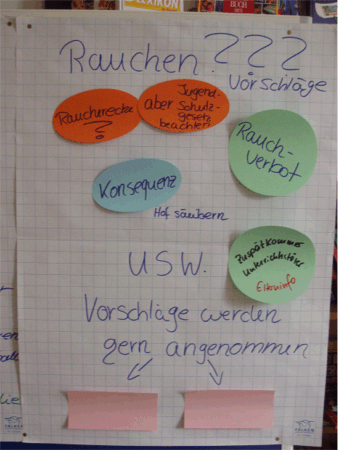 LEXIKON
BUCH
Rauchen. ???
Vorschläge
Raucherecke
?
Jugend-
aber Schulz-
gesetz
beachten
Rauch-
verbot
Konsequenz
Hof säubern
Zuspätkommer
Unterrichtstörer
Elterninfo
USW.
Vorschläge werden
gern angenommen